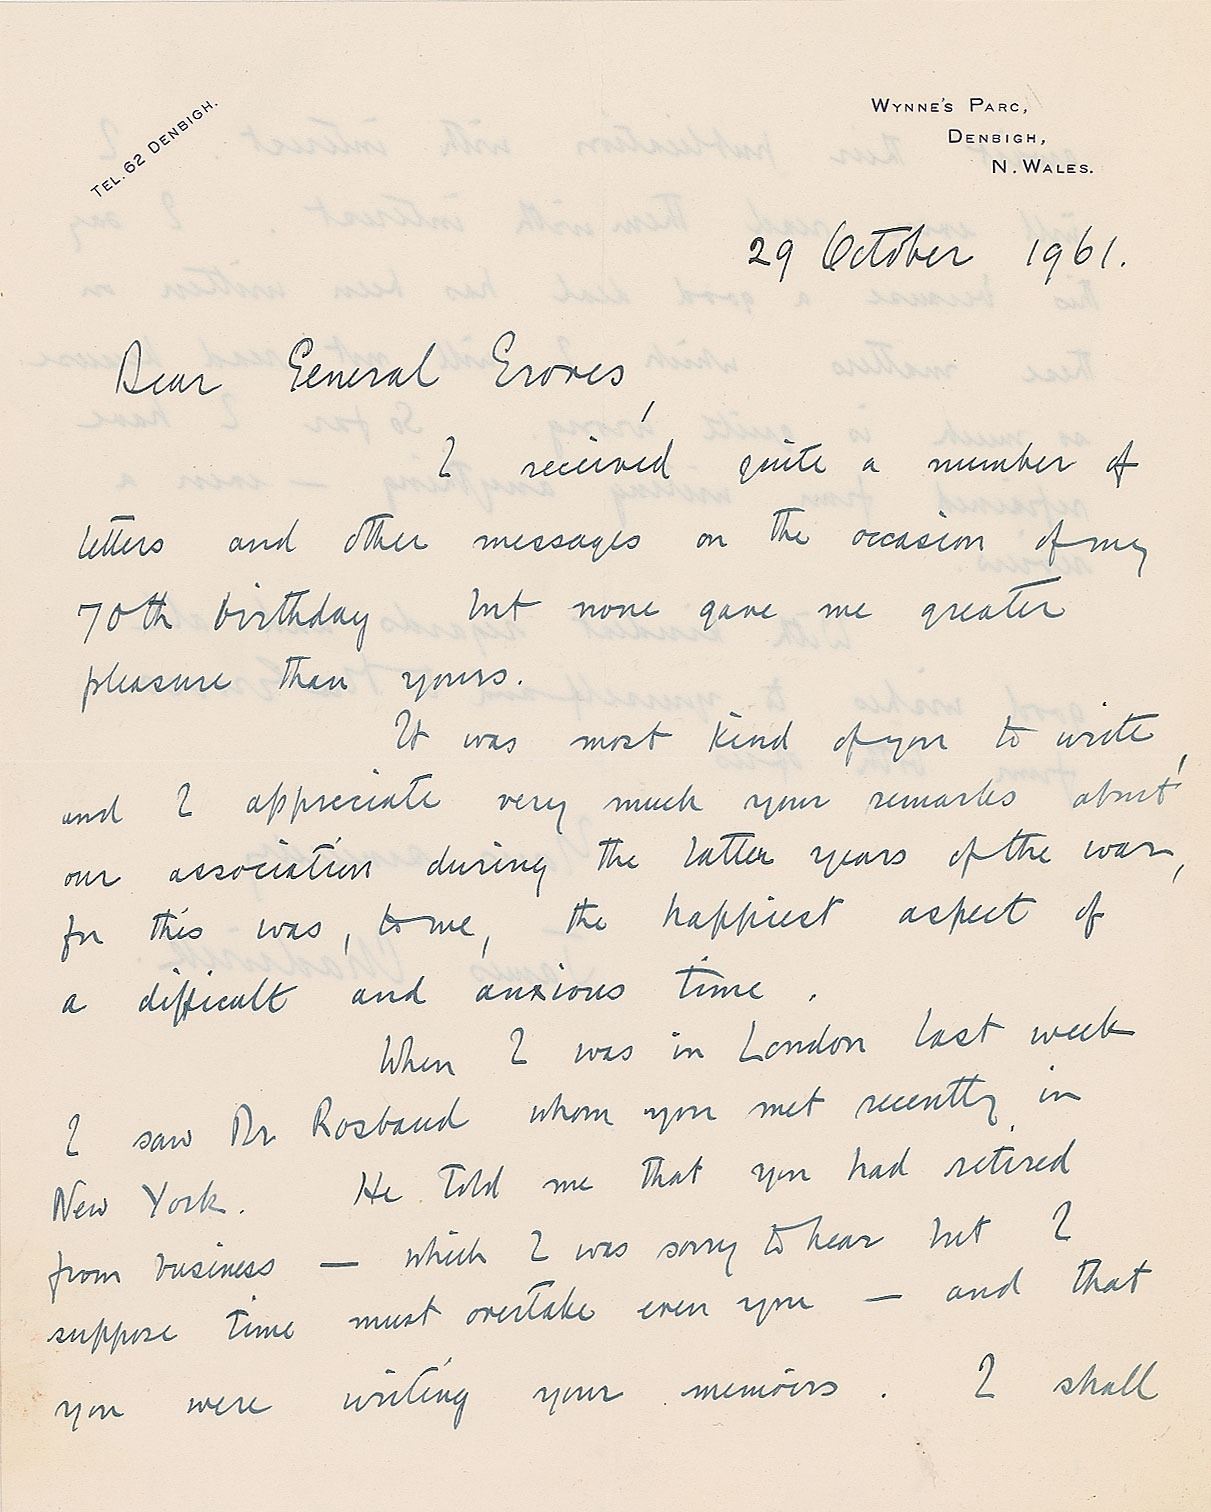 TEL. 62 DENBIGH.
WYNNE'S PARC,
DENBIGH,
N. WALES.
29 October 1961.
Dear General Groves,
I received quite a number of
letters and other messages on the occasion of my
70th birthday but none gave me greater
pleasure than yours.
It was most kind of you to write,
and I appreciate very much your remarks about
our association during the latter years of the war,
for this was, to me, the happiest aspect of
a difficult and anxious time.
When I was in London last week
I saw Dr Rosbaud whom you met recently in
New York. He told me that you had retired
from business — which I was sorry to hear but I
suppose time must overtake even you — and that
you were writing your memoirs. I shall